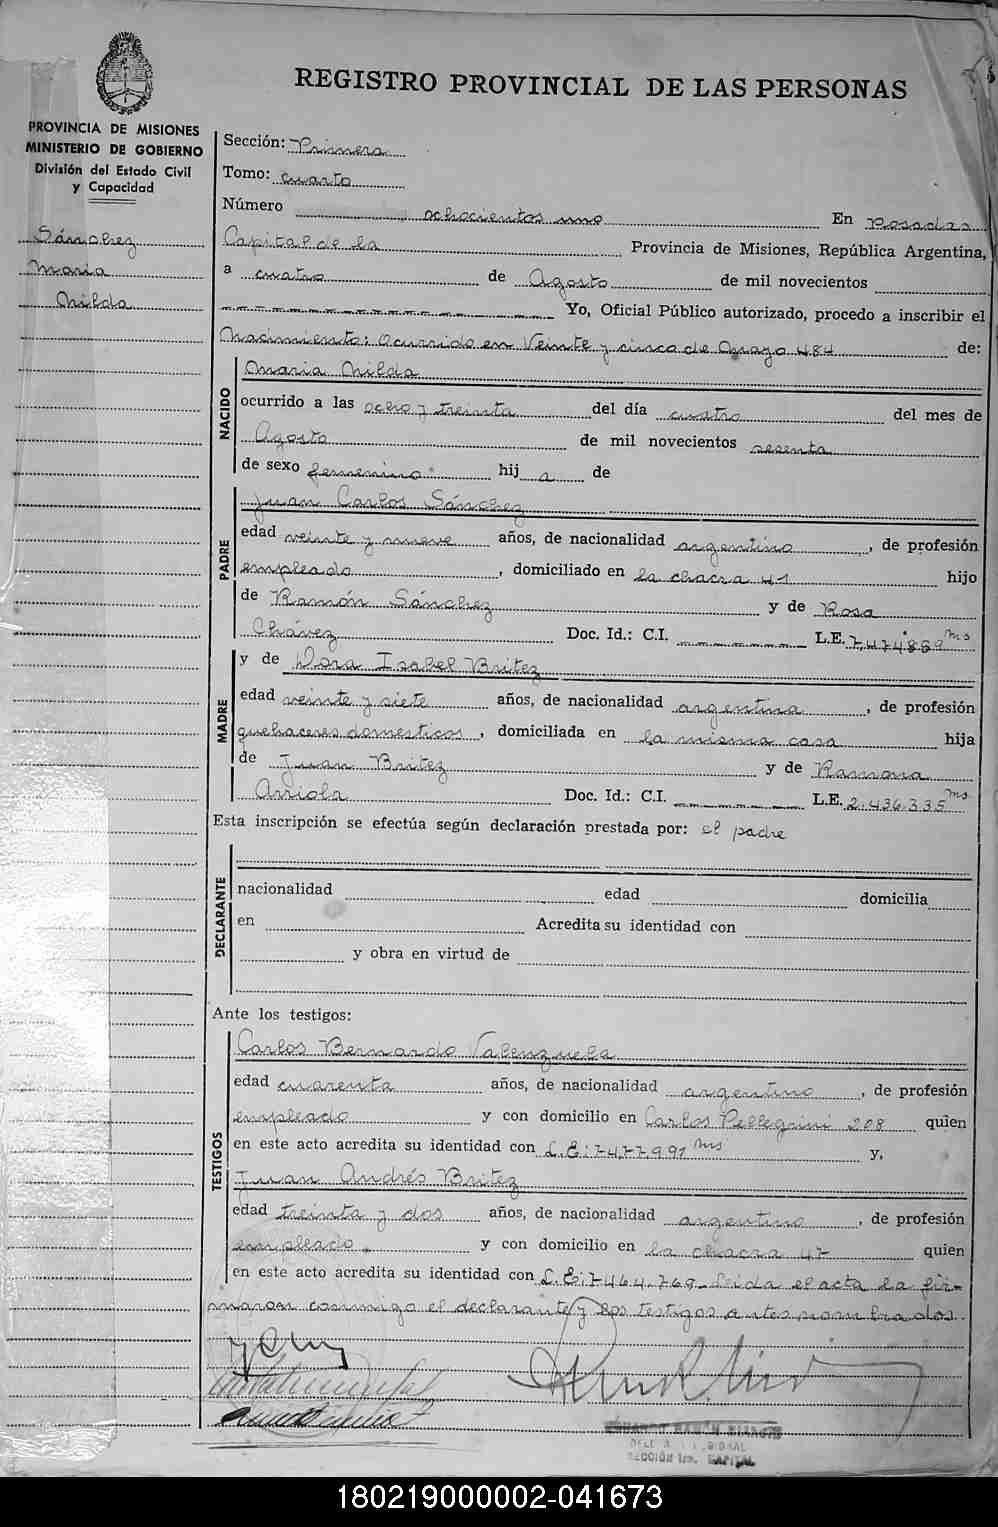 REGISTRO PROVINCIAL DE LAS PERSONAS
PROVINCIA DE MISIONES
MINISTERIO DE GOBIERNO
División del Estado Civil
y Capacidad
Sánchez
Maria
Nilda
Sección: Primera
Tomo: cuarto
Número ochocientos uno En Posadas
Capital de la Provincia de Misiones, República Argentina,
a cuatro de Agosto de mil novecientos
Yo, Oficial Público autorizado, procedo a inscribir el
Nacimiento: Ocurrido en Veinte y cinco de Mayo 484 de:
NACIDO
Maria Nilda
ocurrido a las ocho y treinta del día cuatro del mes de
Agosto de mil novecientos sesenta
de sexo femenino hij a de
PADRE
Juan Carlos Sánchez
edad veinte y nueve años, de nacionalidad argentino, de profesión
empleado, domiciliado en la chacra 41 hijo
de Ramón Sánchez y de Rosa
Chávez Doc. Id.: C.I. L.E. 7.474.889 ms
MADRE
y de Dora Isabel Britez
edad veinte y siete años, de nacionalidad argentina, de profesión
quehaceres domesticos, domiciliada en la misma casa hija
de Juan Britez y de Ramona
Arriola Doc. Id.: C.I. L.E. 2.436.335 ms
Esta inscripción se efectúa según declaración prestada por: el padre
DECLARANTE
nacionalidad edad domicilia
en Acredita su identidad con
y obra en virtud de
Ante los testigos:
TESTIGOS
Carlos Bernardo Valenzuela
edad cuarenta años, de nacionalidad argentino, de profesión
empleado y con domicilio en Carlos Pellegrini 208 quien
en este acto acredita su identidad con L.E: 7.477.991 ms y,
Juan Andrés Britez
edad treinta y dos años, de nacionalidad argentino, de profesión
empleado. y con domicilio en la chacra 47 quien
en este acto acredita su identidad con L.E: 7.464.769. Leida el acta la fir-
maron conmigo el declarante y los testigos antes nombrados.
SECCIÓN 1ra. CAPITAL
180219000002-041673